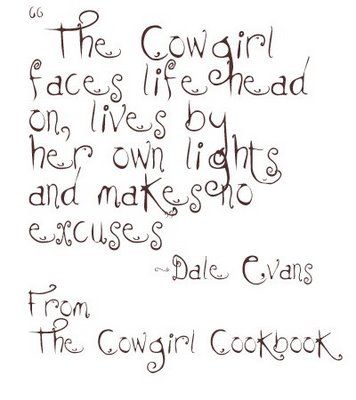 “ The Cowgirl
faces life head
on, lives by
her own lights
and makes no
excuses”
~Dale Evans
From
The Cowgirl Cookbook